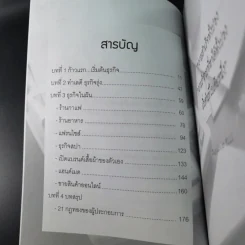 สารบัญ
บทที่ 1 ก้าวแรก... เริ่มต้นธุรกิจ
บทที่ 2 ทำเลดี ธุรกิจรุ่ง
บทที่ 3 ธุรกิจในฝัน
- ร้านกาแฟ
- ร้านอาหาร 68
- แฟรนไชส์ 94
- ธุรกิจสปา 123
- เปิดแบรนด์เสื้อผ้าของตัวเอง 133
- แฮนด์เมด 144
- ขายสินค้าออนไลน์ 160
บทที่ 4 บทสรุป
- 21 กฎทองของผู้ประกอบการ 178